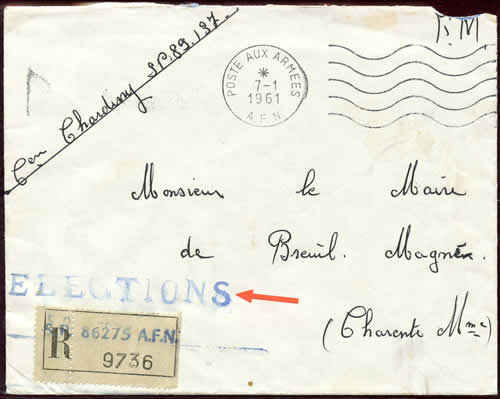 F.M.
Cen Chardiny SP.89.137
POSTE AUX ARMEES
*
7-1
1961
A.F.N.
Monsieur le Maire
de Breuil. Magné
ELECTIONS
(Charente Mme)
R S.P. 86275 A.F.N.
9736